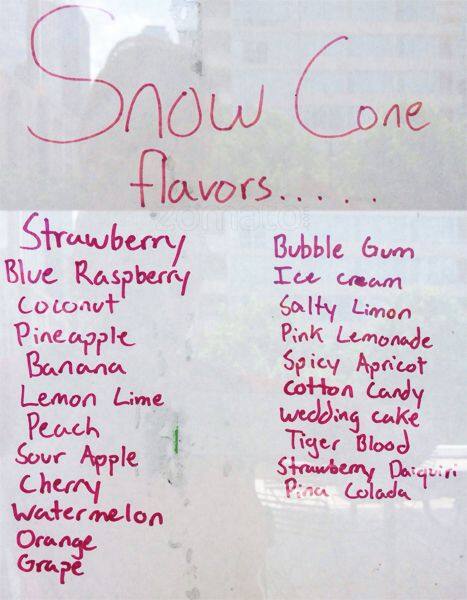 Snow Cone
flavors......
zomato
Strawberry
Blue Raspberry
Coconut
Pineapple
Banana
Lemon Lime
Peach
Sour Apple
Cherry
Watermelon
Orange
Grape
Bubble Gum
Ice cream
Salty Limon
Pink Lemonade
Spicy Apricot
Cotton Candy
Wedding cake
Tiger Blood
Strawberry Daiquiri
Pina Colada